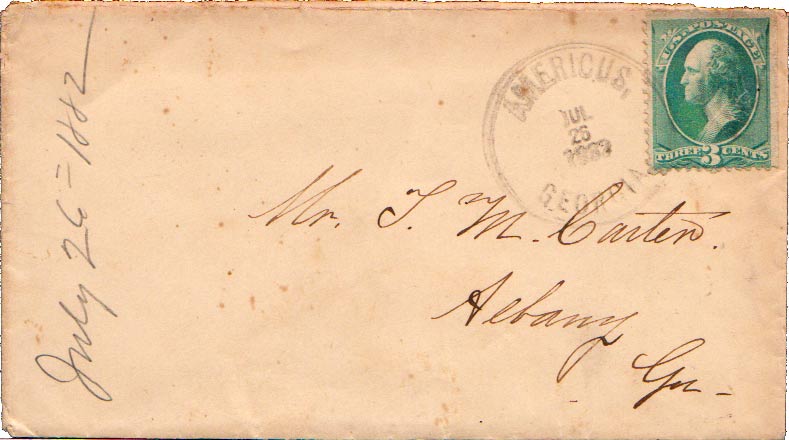 July 26 - 1882
AMERICUS,
JUL
26
1882
GEORGIA
U.S. POSTAGE
THREE 3 CENTS
Mr. T. M. Carter.
Albany
Ga -